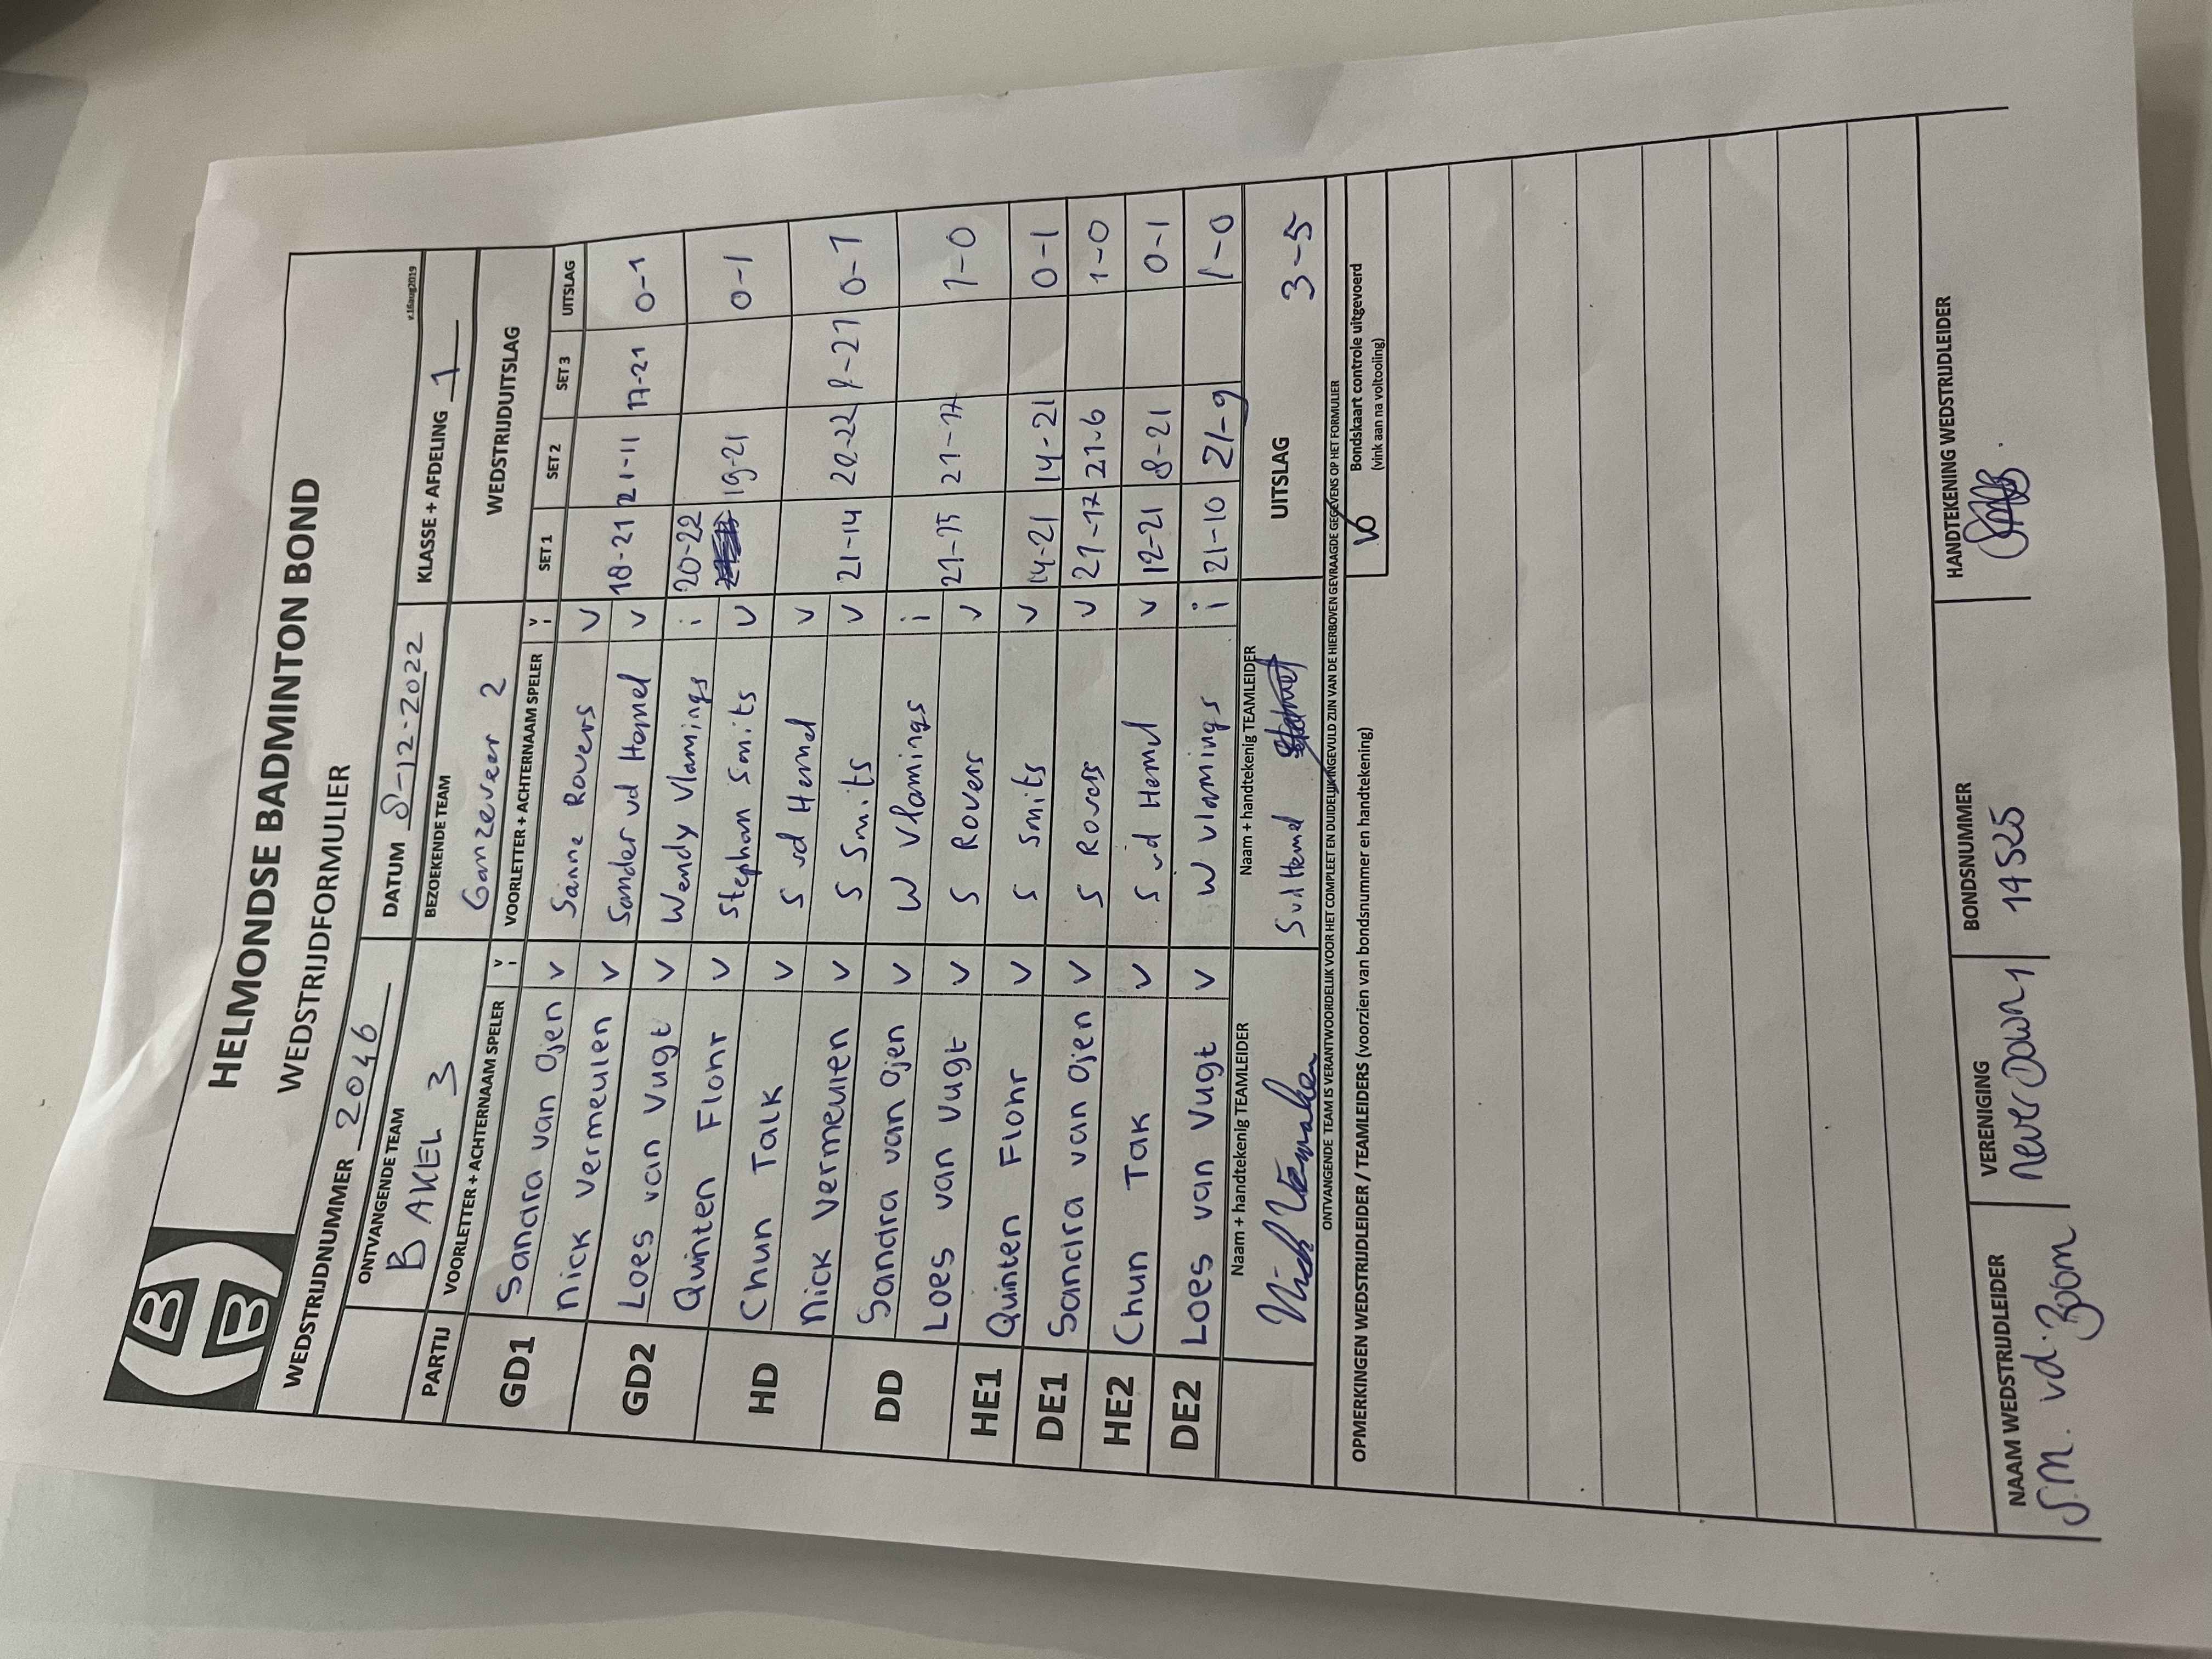 HELMONDSE BADMINTON BOND
WEDSTRIJDFORMULIER
v.16aug2019
WEDSTRIJDNUMMER 2046 DATUM 8-12-2022 KLASSE + AFDELING 1
ONTVANGENDE TEAM BEZOEKENDE TEAM
BAKEL 3 Ganzeveer 2 WEDSTRIJDUITSLAG
PARTIJ VOORLETTER + ACHTERNAAM SPELER V I VOORLETTER + ACHTERNAAM SPELER V I SET 1 SET 2 SET 3 UITSLAG
GD1 Sandra van Ojen v Sanne Rovers v
Nick Vermeulen v Sander vd Hemel v 18-21 21-11 17-21 0-1
GD2 Loes van Vugt v Wendy Vlamings i 20-22
Quinten Flohr v Stephan Smits v 19-21 0-1
HD Chun Talk v S vd Hemel v
Nick Vermeulen v S Smits v 21-14 20-22 9-21 0-1
DD Sandra van Ojen v W Vlamings i
Loes van Vugt v S Rovers v 21-15 21-17 1-0
HE1 Quinten Flohr v S Smits v 14-21 14-21 0-1
DE1 Sandra van Ojen v S Rovers v 21-17 21-6 1-0
HE2 Chun Tak v S vd Hemel v 12-21 8-21 0-1
DE2 Loes van Vugt v W Vlamings i 21-10 21-9 1-0
Naam + handtekenig TEAMLEIDER Naam + handtekenig TEAMLEIDER UITSLAG 3-5
S vd Hemel
ONTVANGENDE TEAM IS VERANTWOORDELIJK VOOR HET COMPLEET EN DUIDELIJK INGEVULD ZIJN VAN DE HIERBOVEN GEVRAAGDE GEGEVENS OP HET FORMULIER
OPMERKINGEN WEDSTRIJDLEIDER / TEAMLEIDERS (voorzien van bondsnummer en handtekening)
Bondskaart controle uitgevoerd
(vink aan na voltooiing)
NAAM WEDSTRIJDLEIDER VERENIGING BONDSNUMMER HANDTEKENING WEDSTRIJDLEIDER
S.M. vd. Boom never Down 1 14525